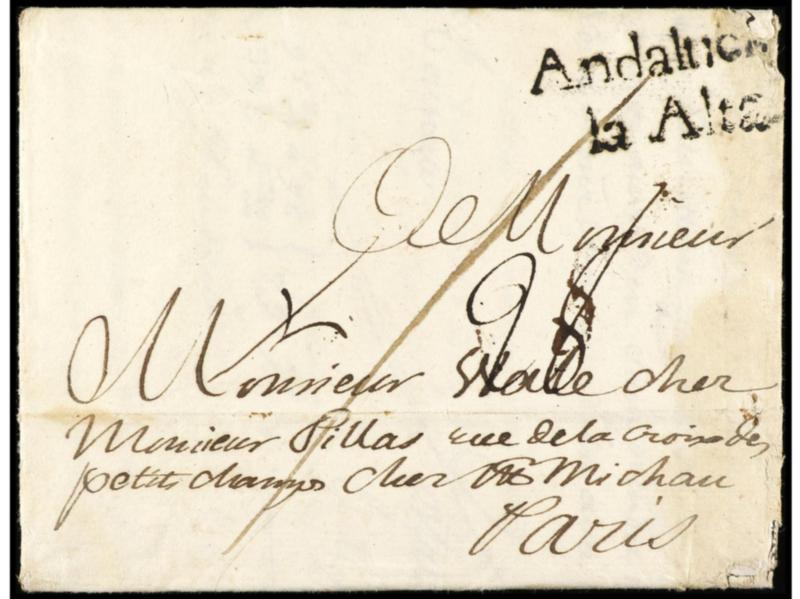 Andalucia
la Alta
A Monsieur
28
Monsieur Wale cher
Monsieur Pillas rue de la Croix des
petits champs cher Mr Michau
Paris